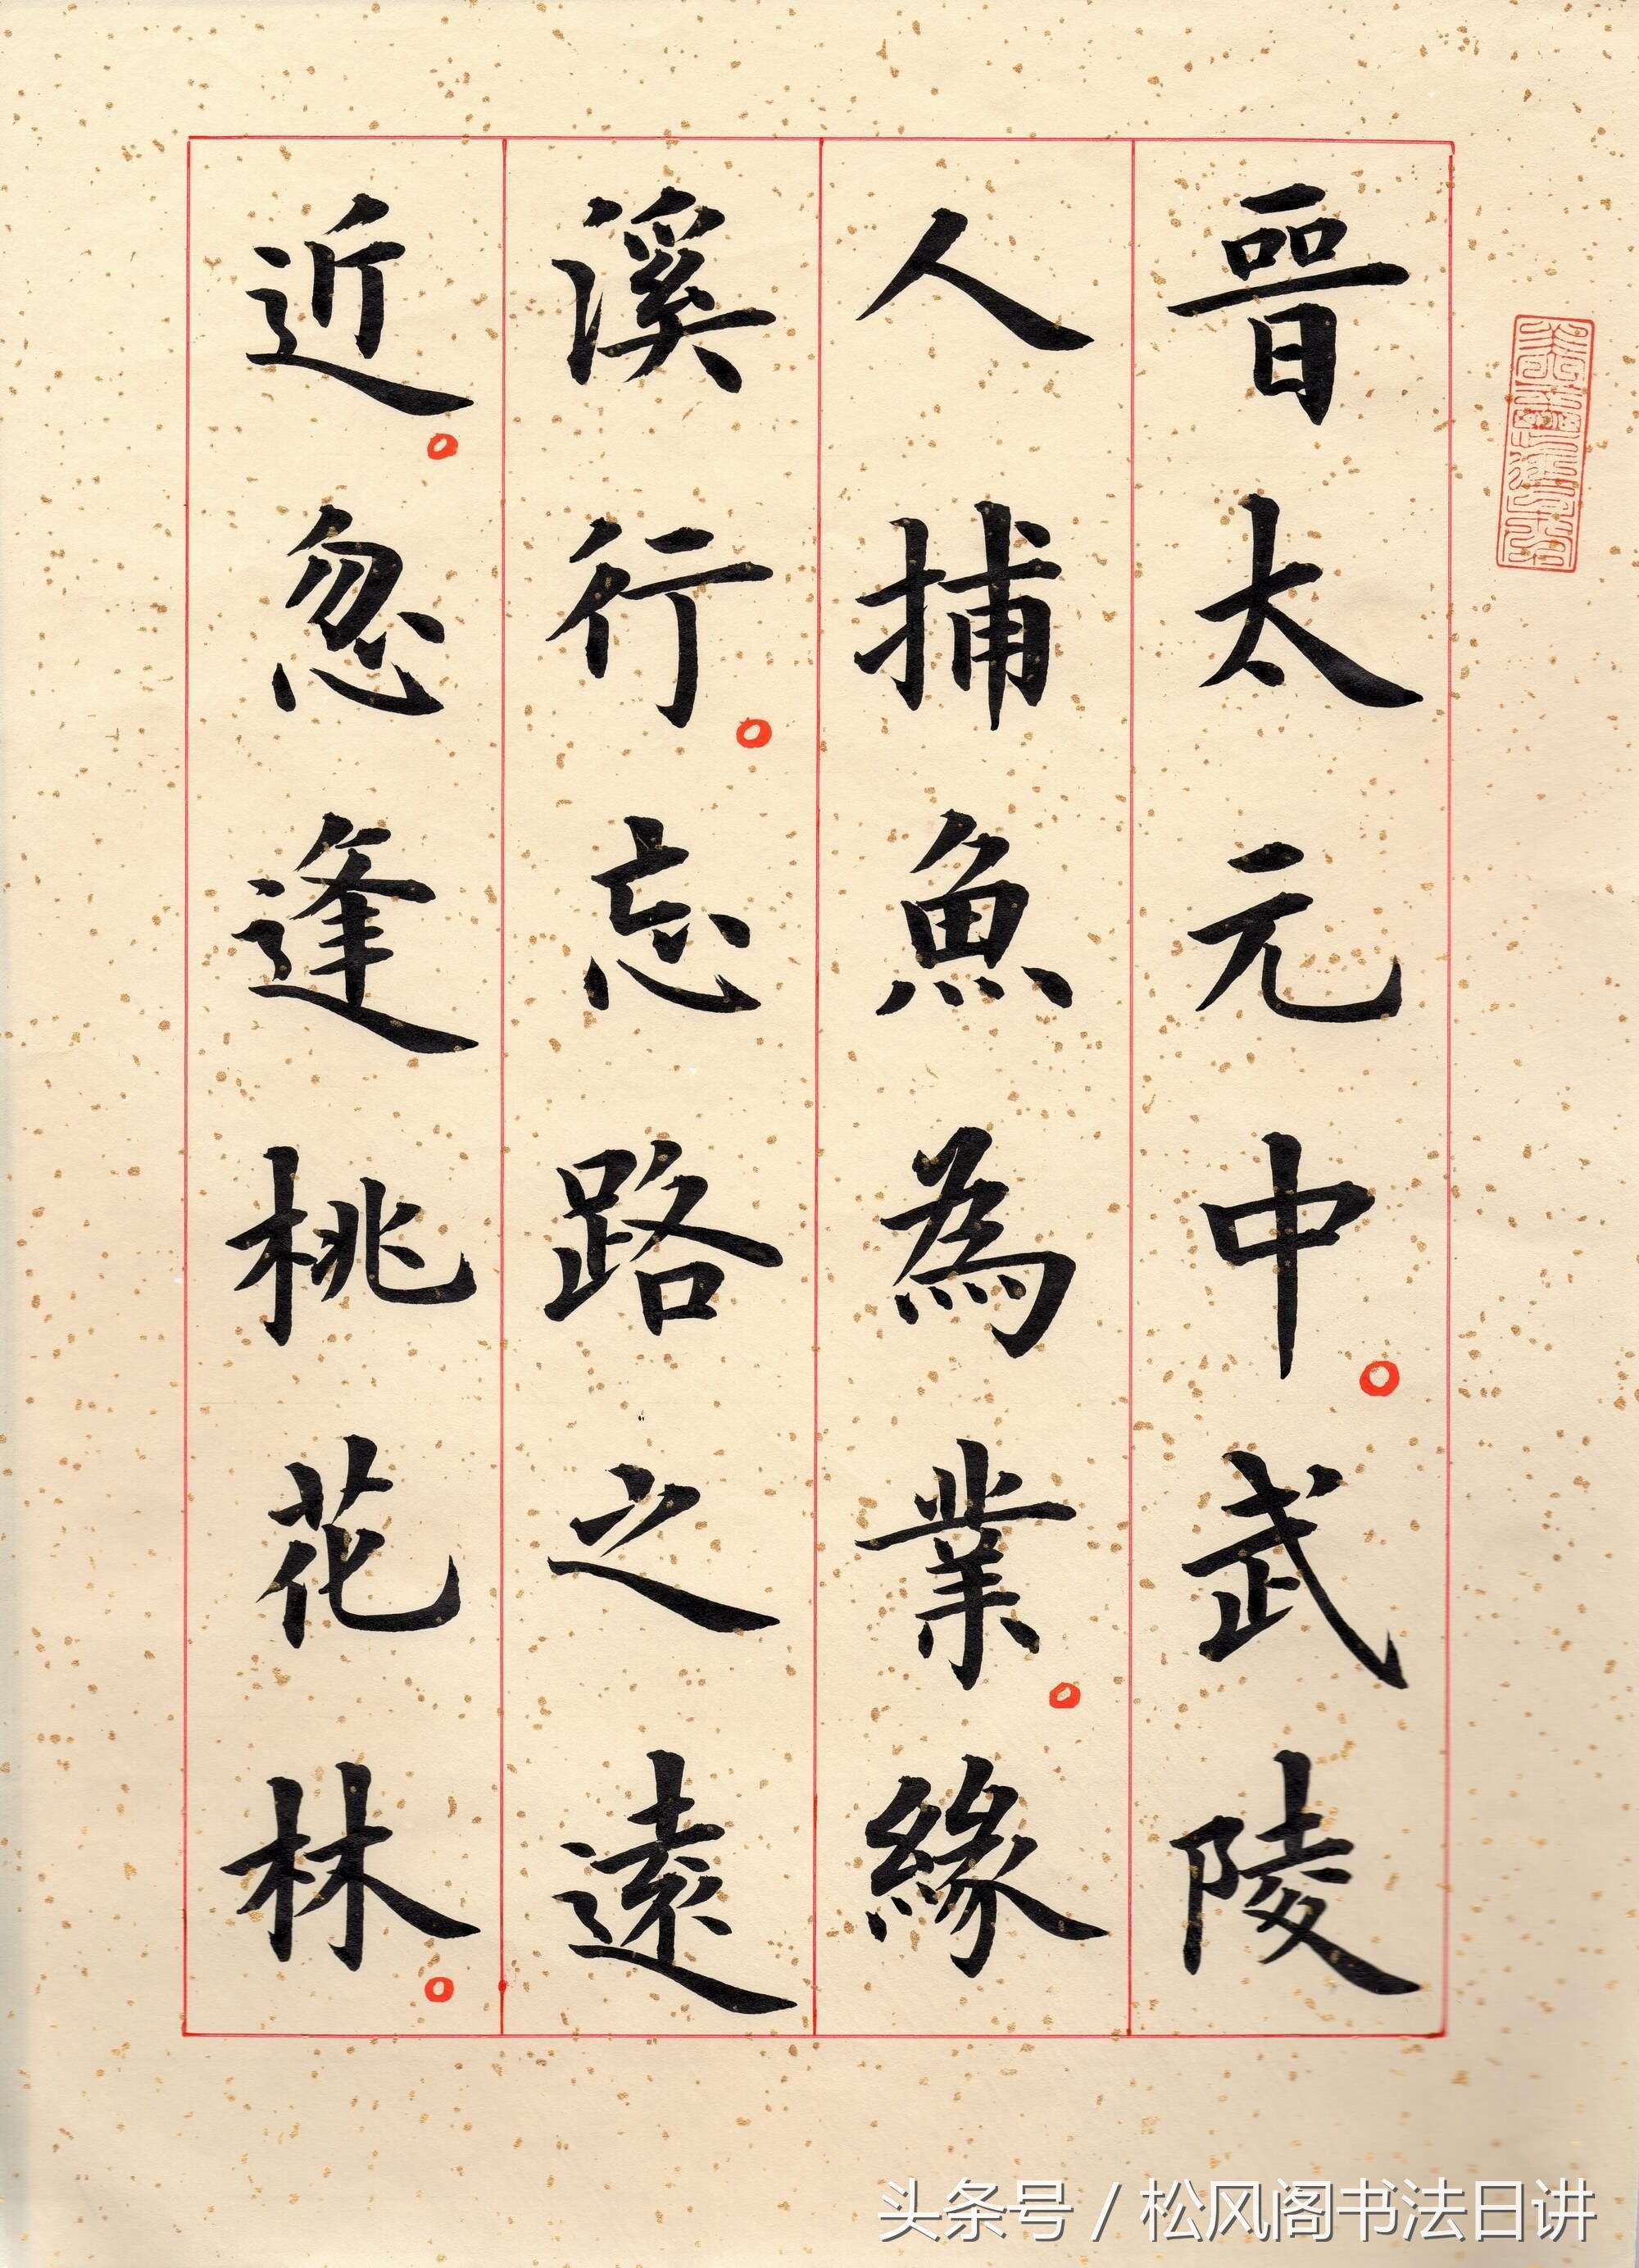 晉太元中。武陵
人捕魚為業。緣
溪行。忘路之遠
近。忽逢桃花林。
头条号 / 松风阁书法日讲